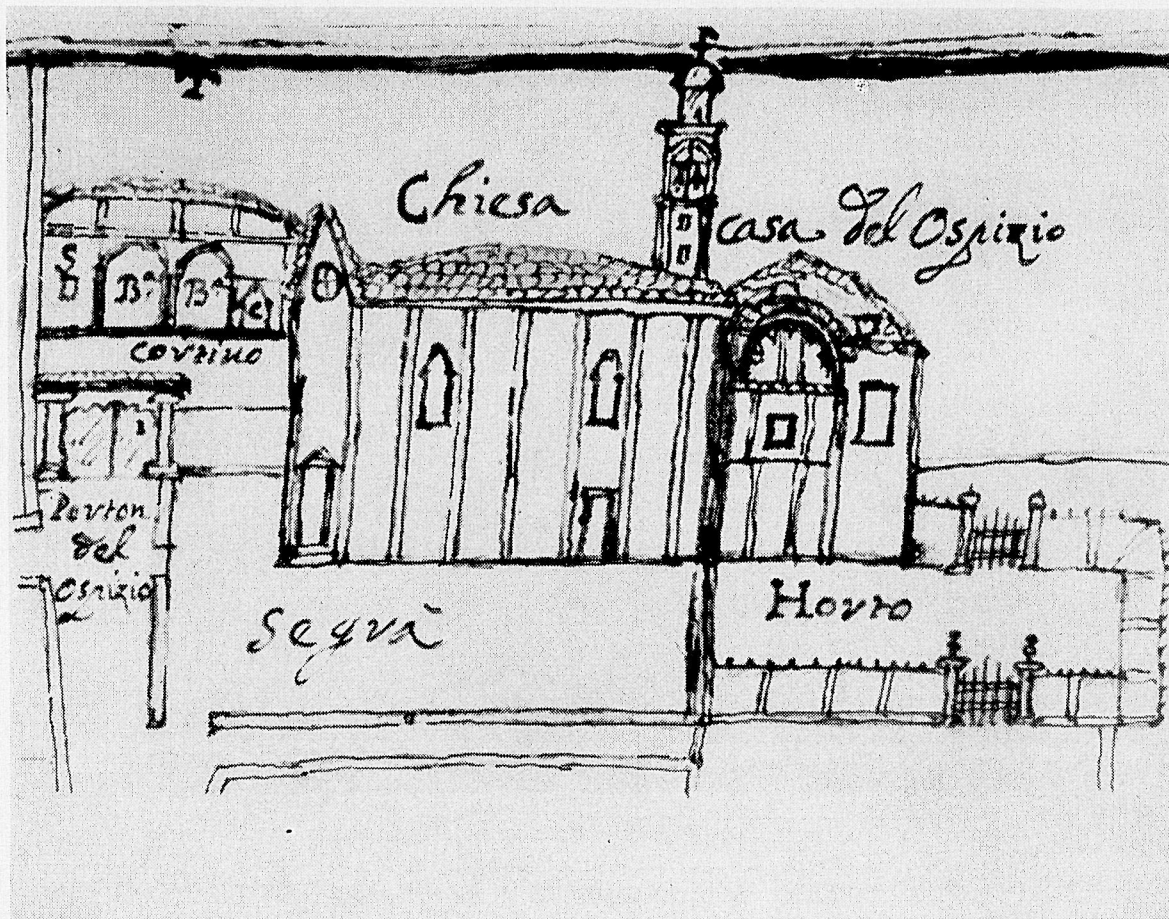 Chiesa
casa del Ospizio
S
Bª
Bª
C
cortino
1
Porton
del
Ospizio
Segrà
Horto